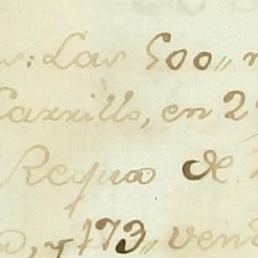 : Las 500,, 
Carrillo, en 2
Requa de
, y 173,, vend